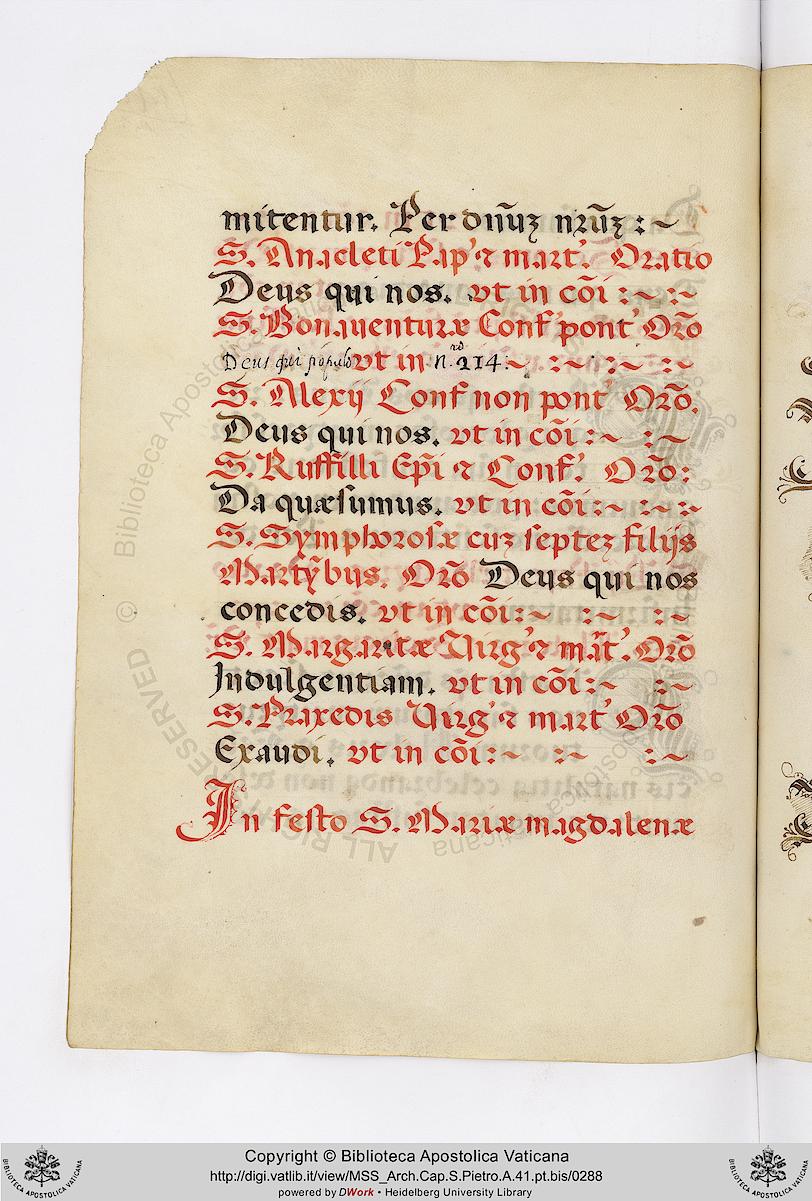 mitentur. Per dn̄uꝫ nr̄uꝫ :~
S. Anacleti Pap' ⁊ mart'. Oratio
Deus qui nos. vt in cōi :~ :~
S. Bonauenturæ Conf' pont' Orō
Deus qui populo vt in n.ro 214:~ :~ :~ :~
S. Alexij Conf non pont' Orō.
Deus qui nos. vt in cōi :~ :~
S. Ruffilli Ep̄i ⁊ Conf'. Orō:
Da quæsumus. vt in cōi :~ :~ :~
S. Symphorosæ cuꝫ septeꝫ filijs
Martȳbus. Orō Deus qui nos
concedis. vt in cōi :~ :~ :~
S. Margaritæ Virg' ⁊ māt'. Orō
Indulgentiam. vt in cōi :~ :~
S. Praxedis Virg' ⁊ mart' Orō
Exaudi. vt in cōi :~ :~ :~
In festo S. Mariæ magdalenæ
© Biblioteca Apostolica Vaticana
ALL RIGHTS RESERVED
Copyright © Biblioteca Apostolica Vaticana
http://digi.vatlib.it/view/MSS_Arch.Cap.S.Pietro.A.41.pt.bis/0288
powered by DWork • Heidelberg University Library
BIBLIOTECA APOSTOLICA VATICANA
BIBLIOTECA APOSTOLICA VATICANA